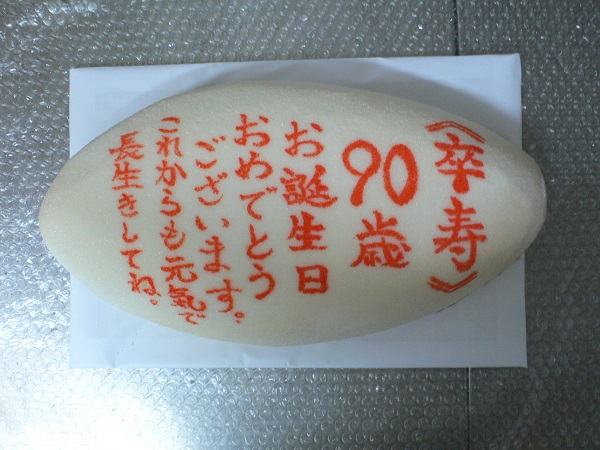 《卒寿》
90歳
お誕生日
おめでとう
ございます。
これからも元気で
長生きしてね。